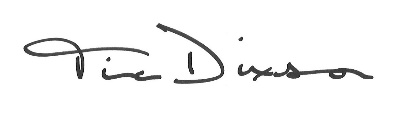 Tim Dixson